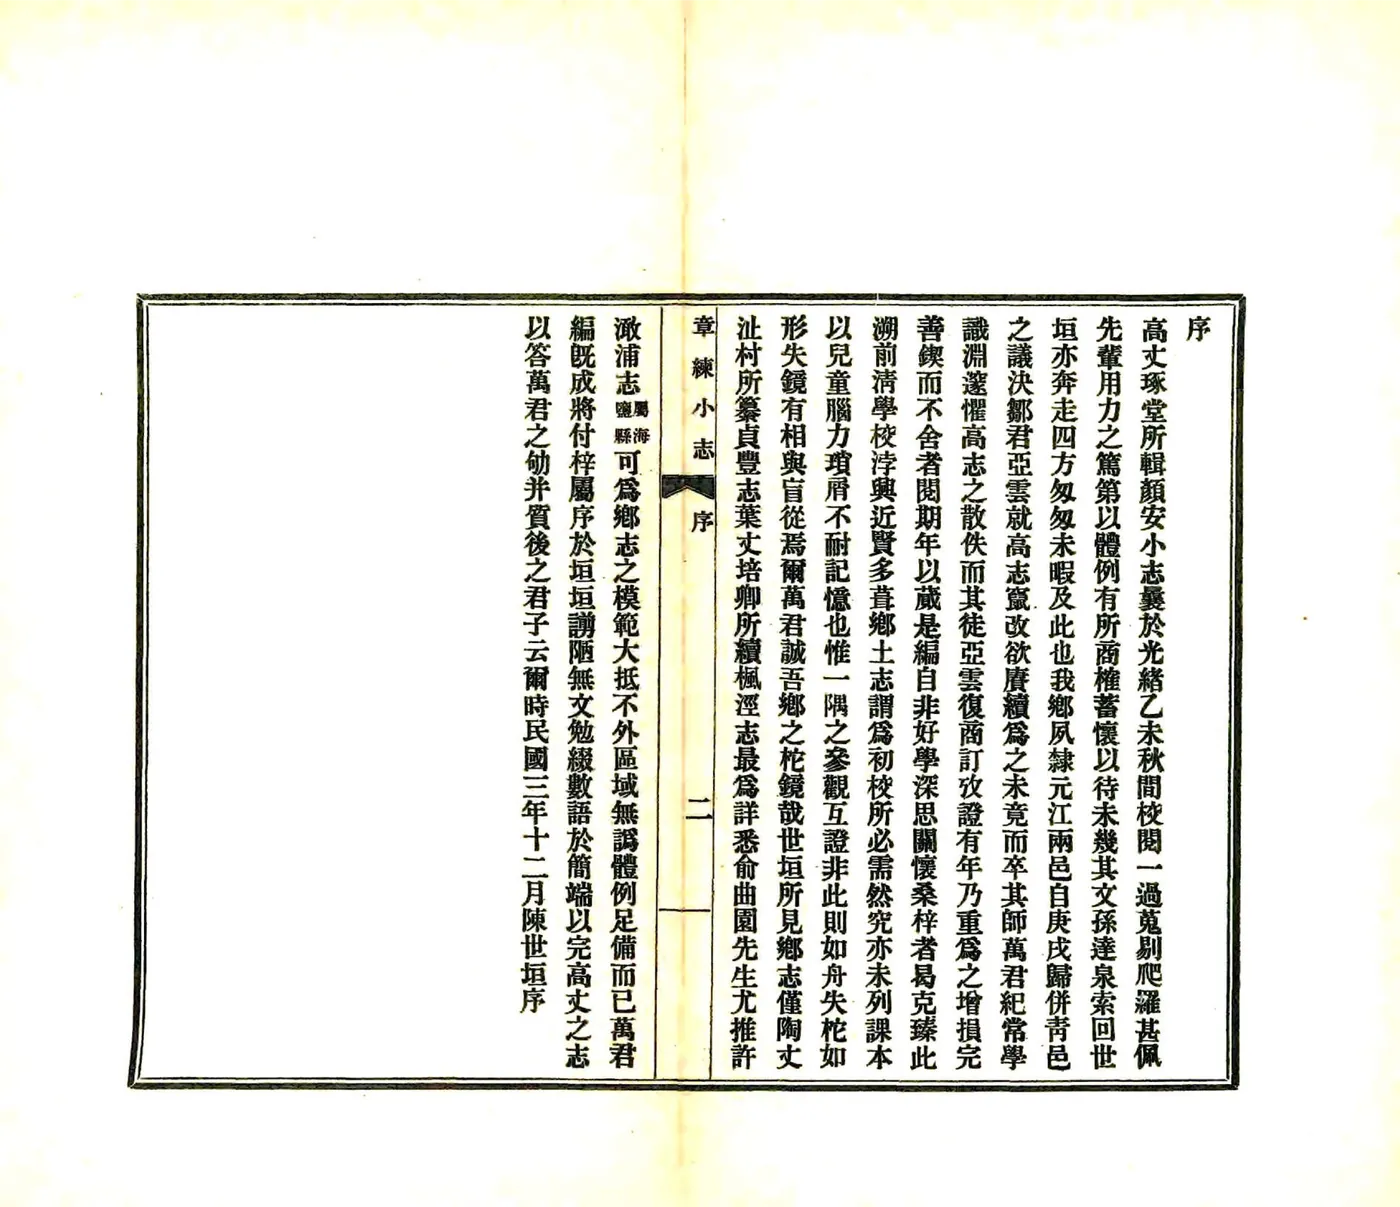 序
高丈琢堂所輯顏安小志曩於光緒乙未秋間校閱一過蒐剔爬羅甚佩
先輩用力之篤第以體例有所商榷蓄懷以待未幾其文孫達泉索回世
垣亦奔走四方匆匆未暇及此也我鄉夙隸元江兩邑自庚戌歸併靑邑
之議決鄒君亞雲就高志竄改欲賡續爲之未竟而卒其師萬君紀常學
識淵邃懼高志之散佚而其徒亞雲復商訂攷證有年乃重爲之增損完
善鍥而不舍者閱期年以蕆是編自非好學深思關懷桑梓者曷克臻此
溯前淸學校浡興近賢多葺鄉土志謂爲初校所必需然究亦未列課本
以兒童腦力瑣屑不耐記憶也惟一隅之參觀互證非此則如舟失柁如
形失鏡有相與盲從焉爾萬君誠吾鄉之柁鏡哉世垣所見鄉志僅陶丈
沚村所纂貞豐志葉丈培卿所續楓涇志最爲詳悉俞曲園先生尤推許
章練小志
序
二
澉浦志屬海鹽縣可爲鄉志之模範大抵不外區域無譌體例足備而已萬君
編旣成將付梓屬序於垣垣謭陋無文勉綴數語於簡端以完高丈之志
以答萬君之劬并質後之君子云爾時民國三年十二月陳世垣序